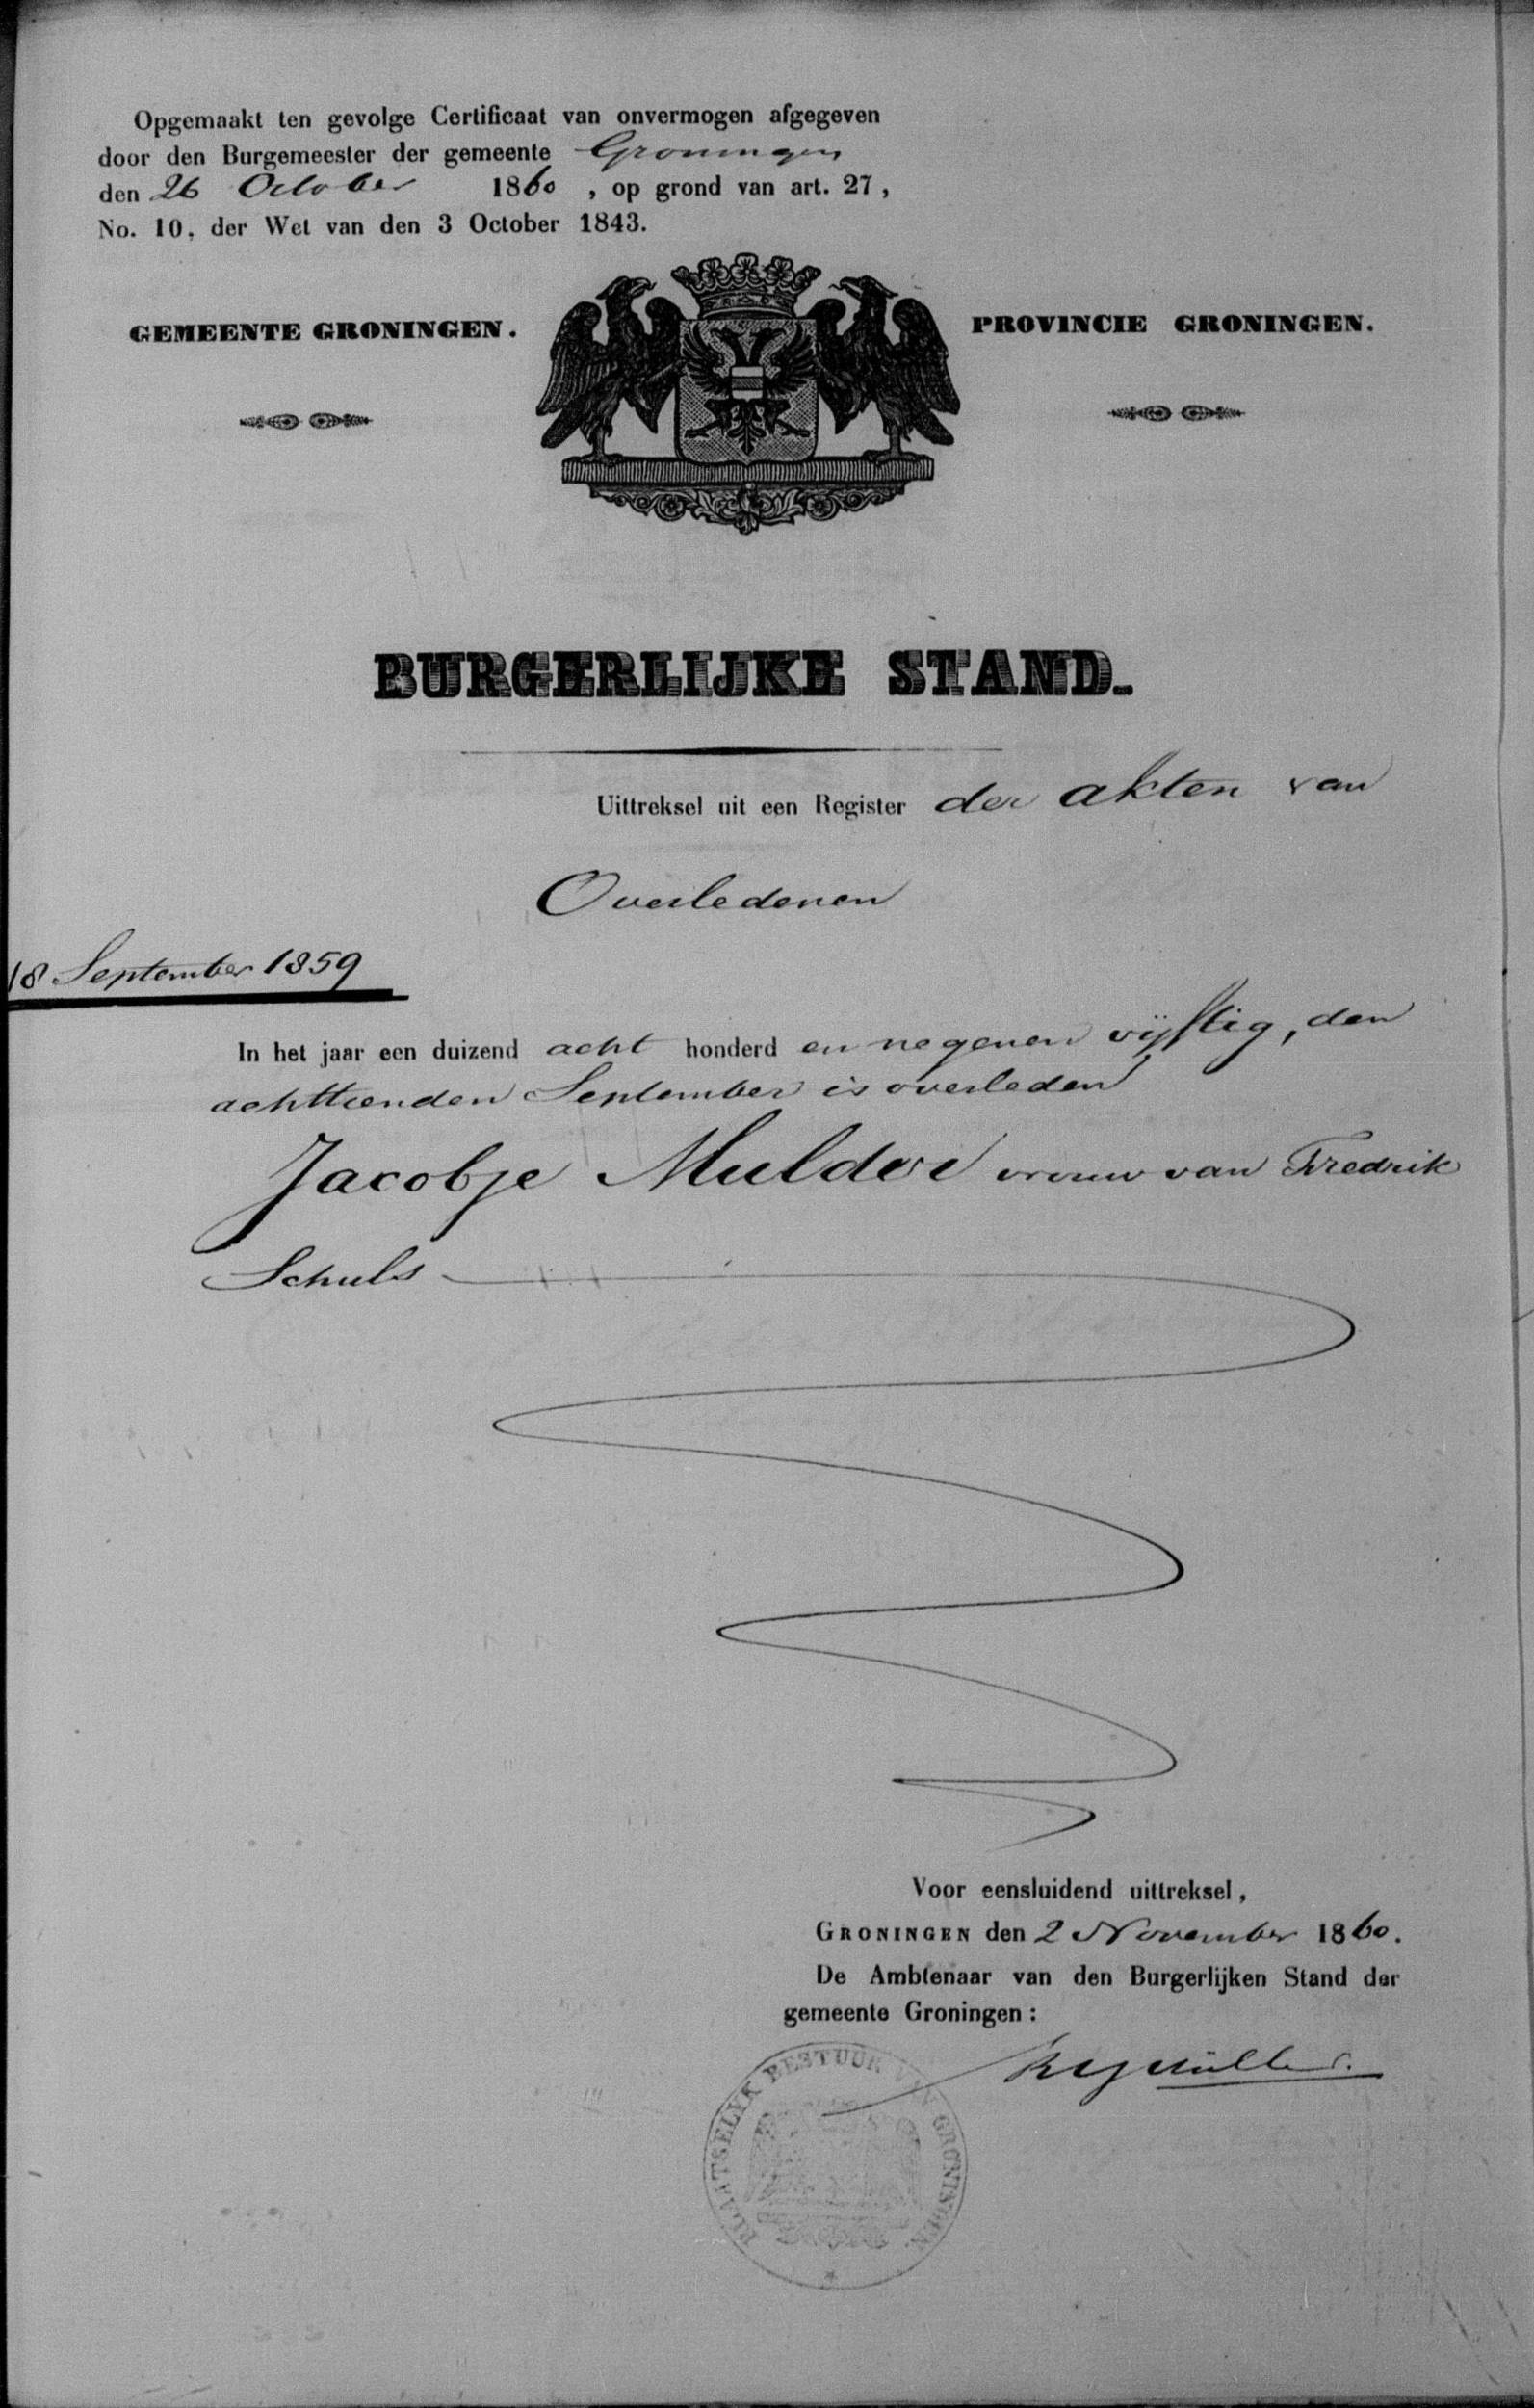 Opgemaakt ten gevolge Certificaat van onvermogen afgegeven
door den Burgemeester der gemeente Groningen
den 26 October 1860 , op grond van art. 27 ,
No. 10, der Wet van den 3 October 1843.
GEMEENTE GRONINGEN.
PROVINCIE GRONINGEN.
BURGERLIJKE STAND.
Uittreksel uit een Register der akten van
Overledenen
18 September 1859
In het jaar een duizend acht honderd en negenen vijftig, den
achttienden September is overleden
Jacobje Mulder vrouw van Fredrik
Schuls
Voor eensluidend uittreksel,
GRONINGEN den 2 November 1860.
De Ambtenaar van den Burgerlijken Stand der
gemeente Groningen :
PLAATSELYK BESTUUR VAN GRONINGEN